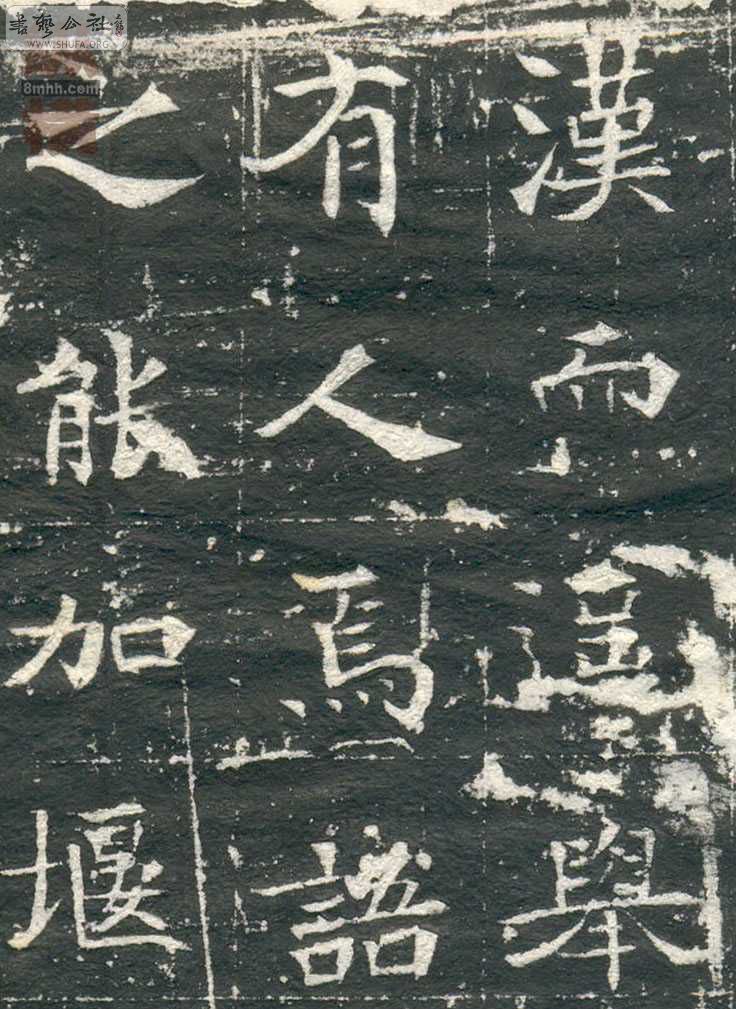 書藝公社
WWW.SHUFA.ORG
8mhh.com
漢而舉
有人焉
之能加堰